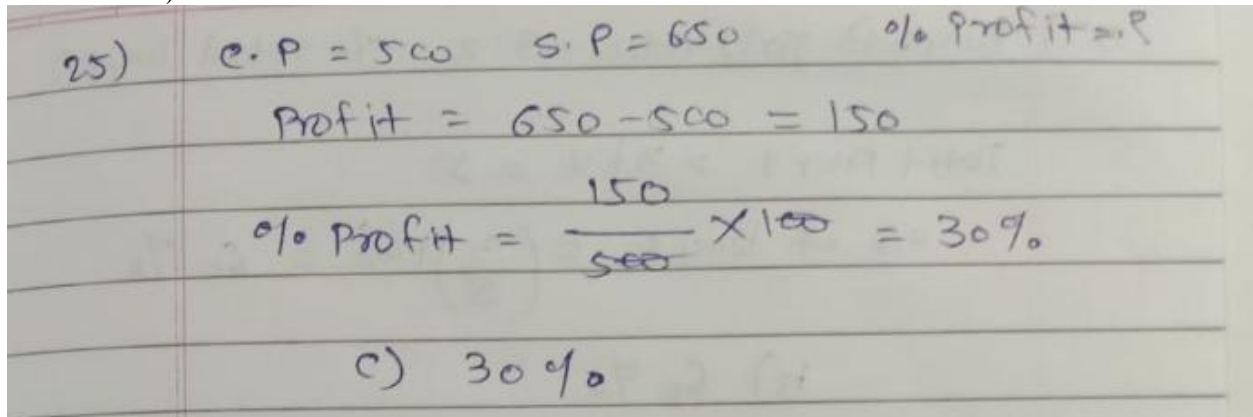 25) C.P = 500 S.P = 650 % Profit = ?
Profit = 650 - 500 = 150
% Profit = 150/500 × 100 = 30%
c) 30%